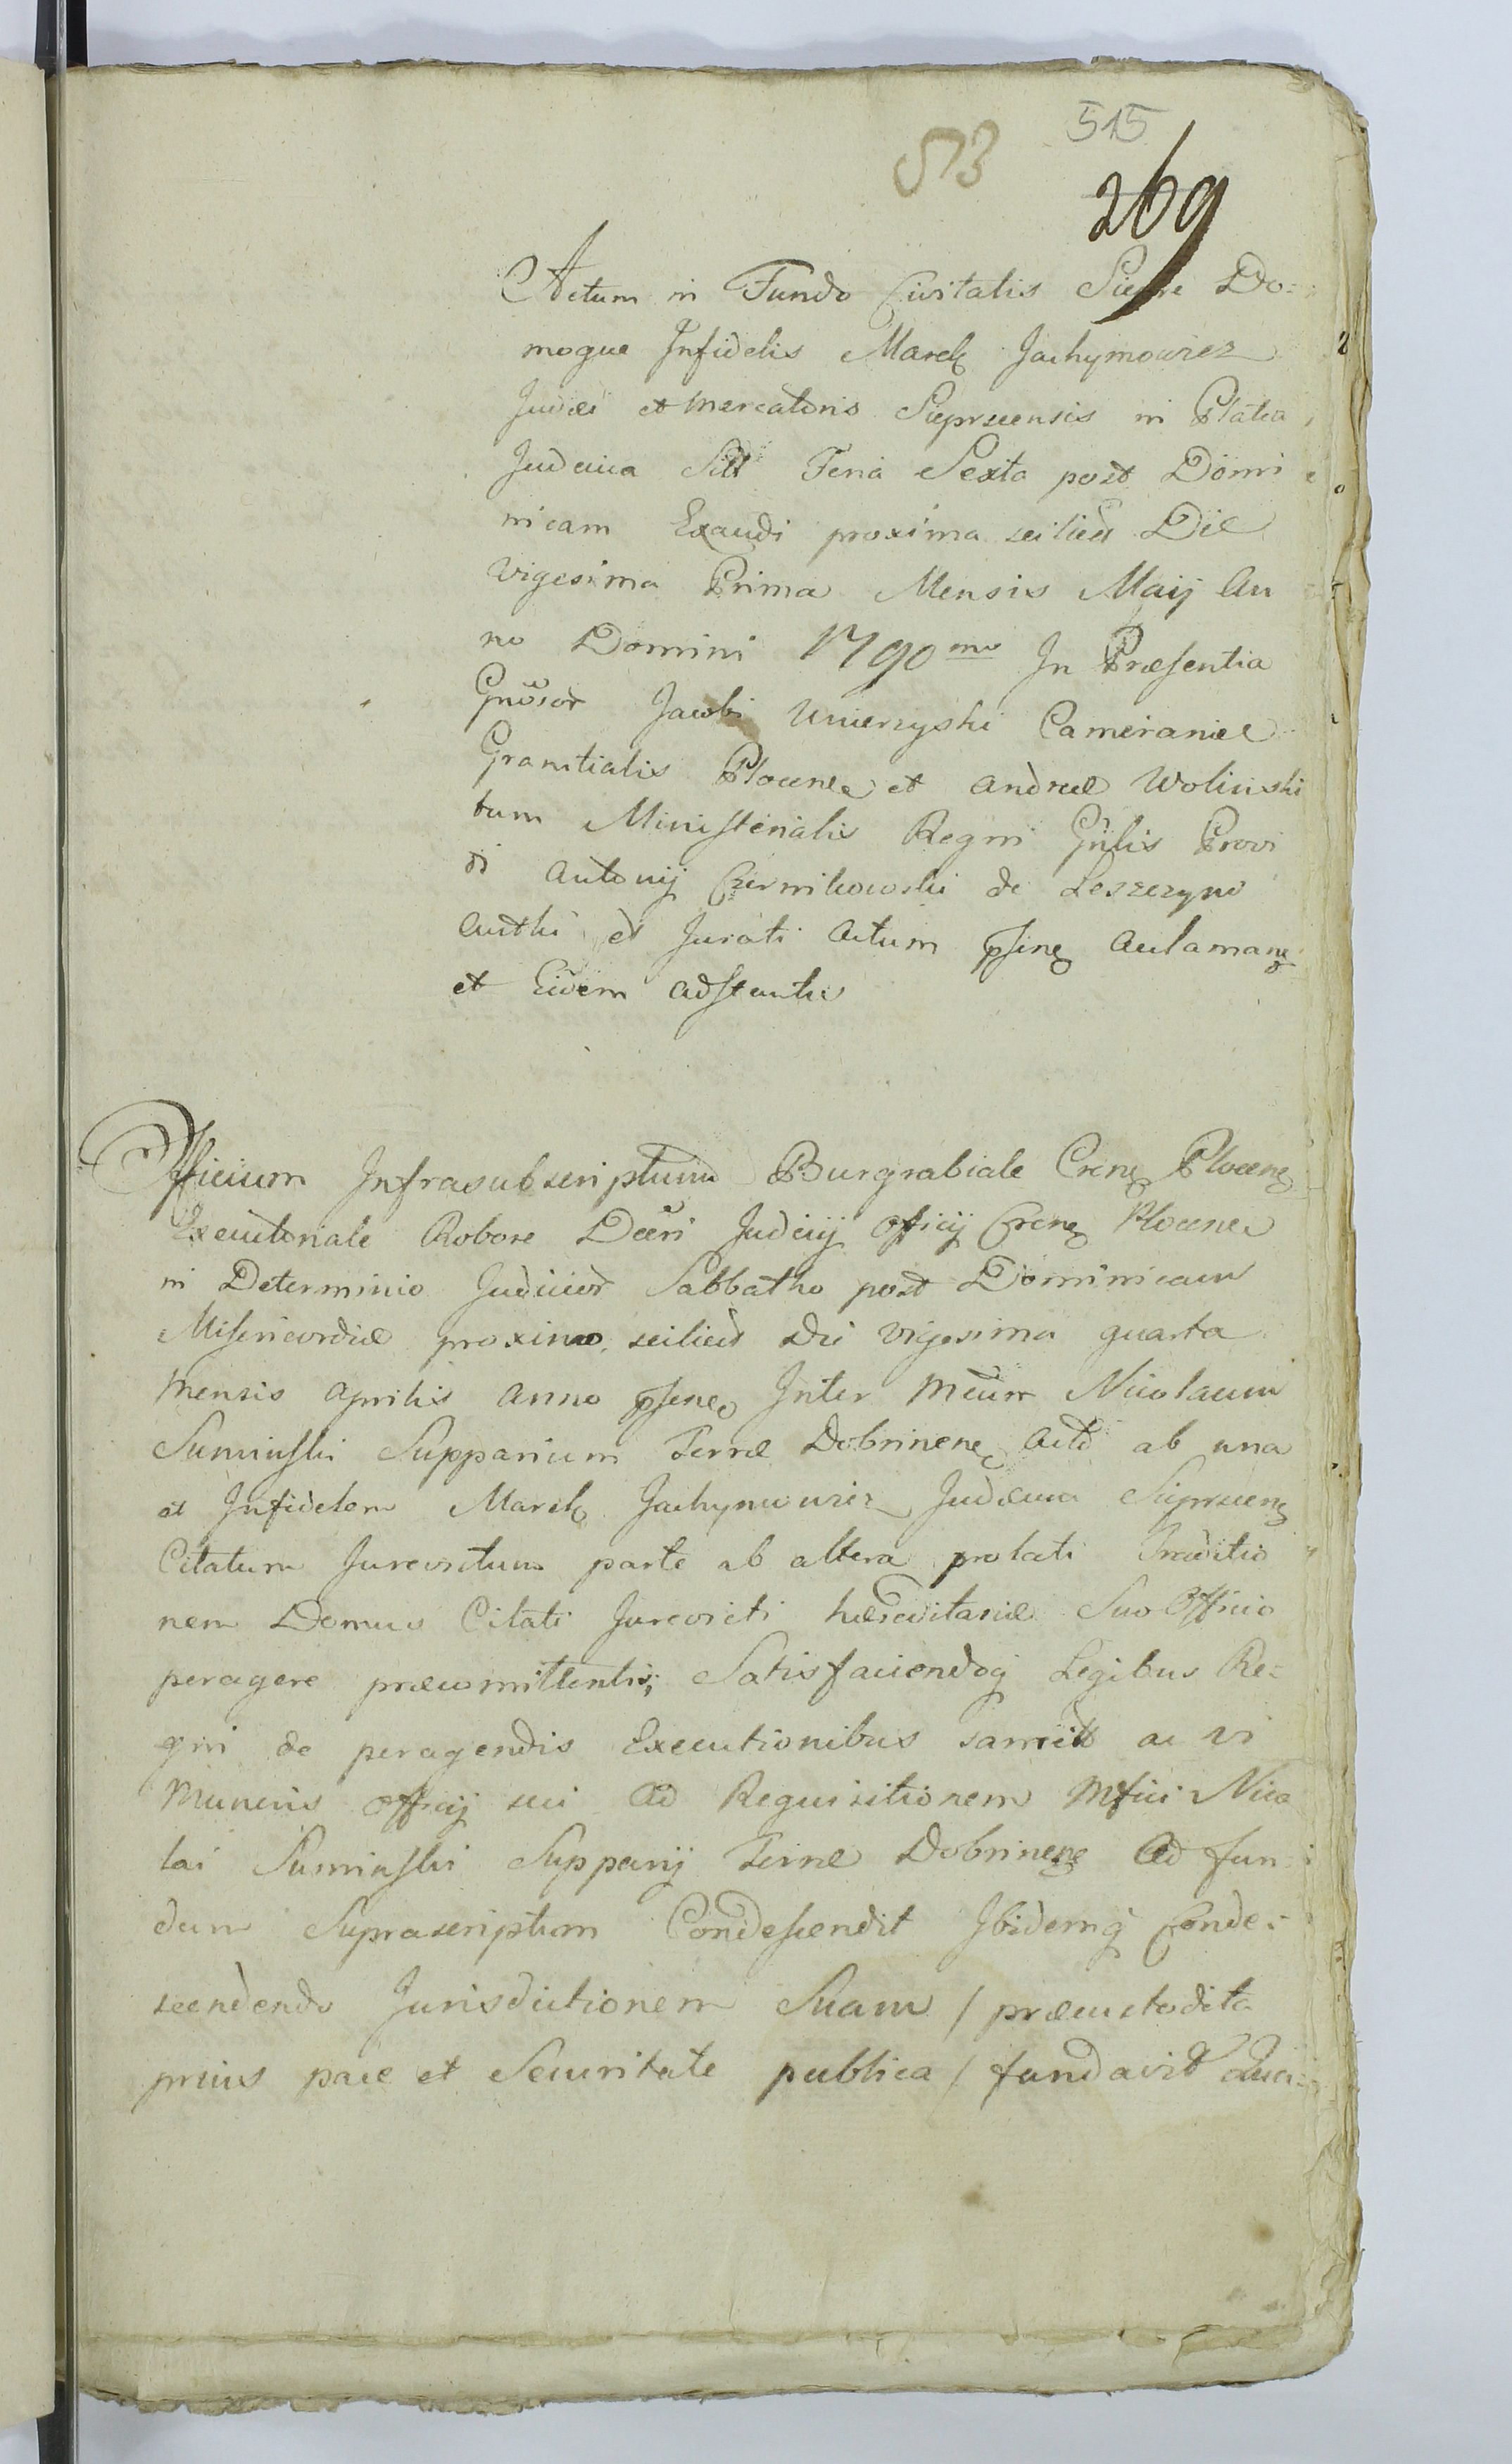 513
515
269
Actum in Fundo Civitatis Sierpe Do=
moque Infidelis Marek Jachymowicz
Judæi et Mercatoris Sieprcensis in Platea
Judaica Siti Feria Sexta post Domi
nicam Exaudi proxima scilicet Die
Vigesima Prima Mensis Maij An
no Domini 1790mo In Præsentia
Gnosor Jacobi Umierzyski Cameraniæ
Granitialis Plocene et Andreæ Wolinski
tum Ministerialis Regni Gnlis Provi
di Antonij Czernikowski de Leszczyno
Authi et Jurati Actum psens aclamans
et Eidem adstantis
Officium Infrasubscriptum Burgrabiale Crens Plocens
Executoriale Robore Dcri Judicij Officij Crens Plocene
in Determinio Judicior Sabbatho post Dominicam
Misericordiæ proximo scilicet Die Vigesima quarta
Mensis Aprilis Anno psene Inter Mcum Nicolaum
Suminski Supparium Terræ Dobrinens Actō ab una
et Infidelem Marek Jachymowicz Judæum Sieprcens
Citatum Jurevictum parte ab altera prolati Traditio
nem Domus Citati Jurevicti hæreditariæ Suo Officio
peragere præcomittentis; Satisfaciendoq Legibus Re=
gni de peragendis Executionibus sancitis ac vi
Muneris Officij sui Ad Requisitionem Mfici Nico
lai Suminski Supparij Terræ Dobrinens Ad fun
dum Suprascriptum Condescendit Ibidemq Conde=
scendendo Jurisdictionem Suam / præcustodita
prius pace et Securitate publica / fundavit